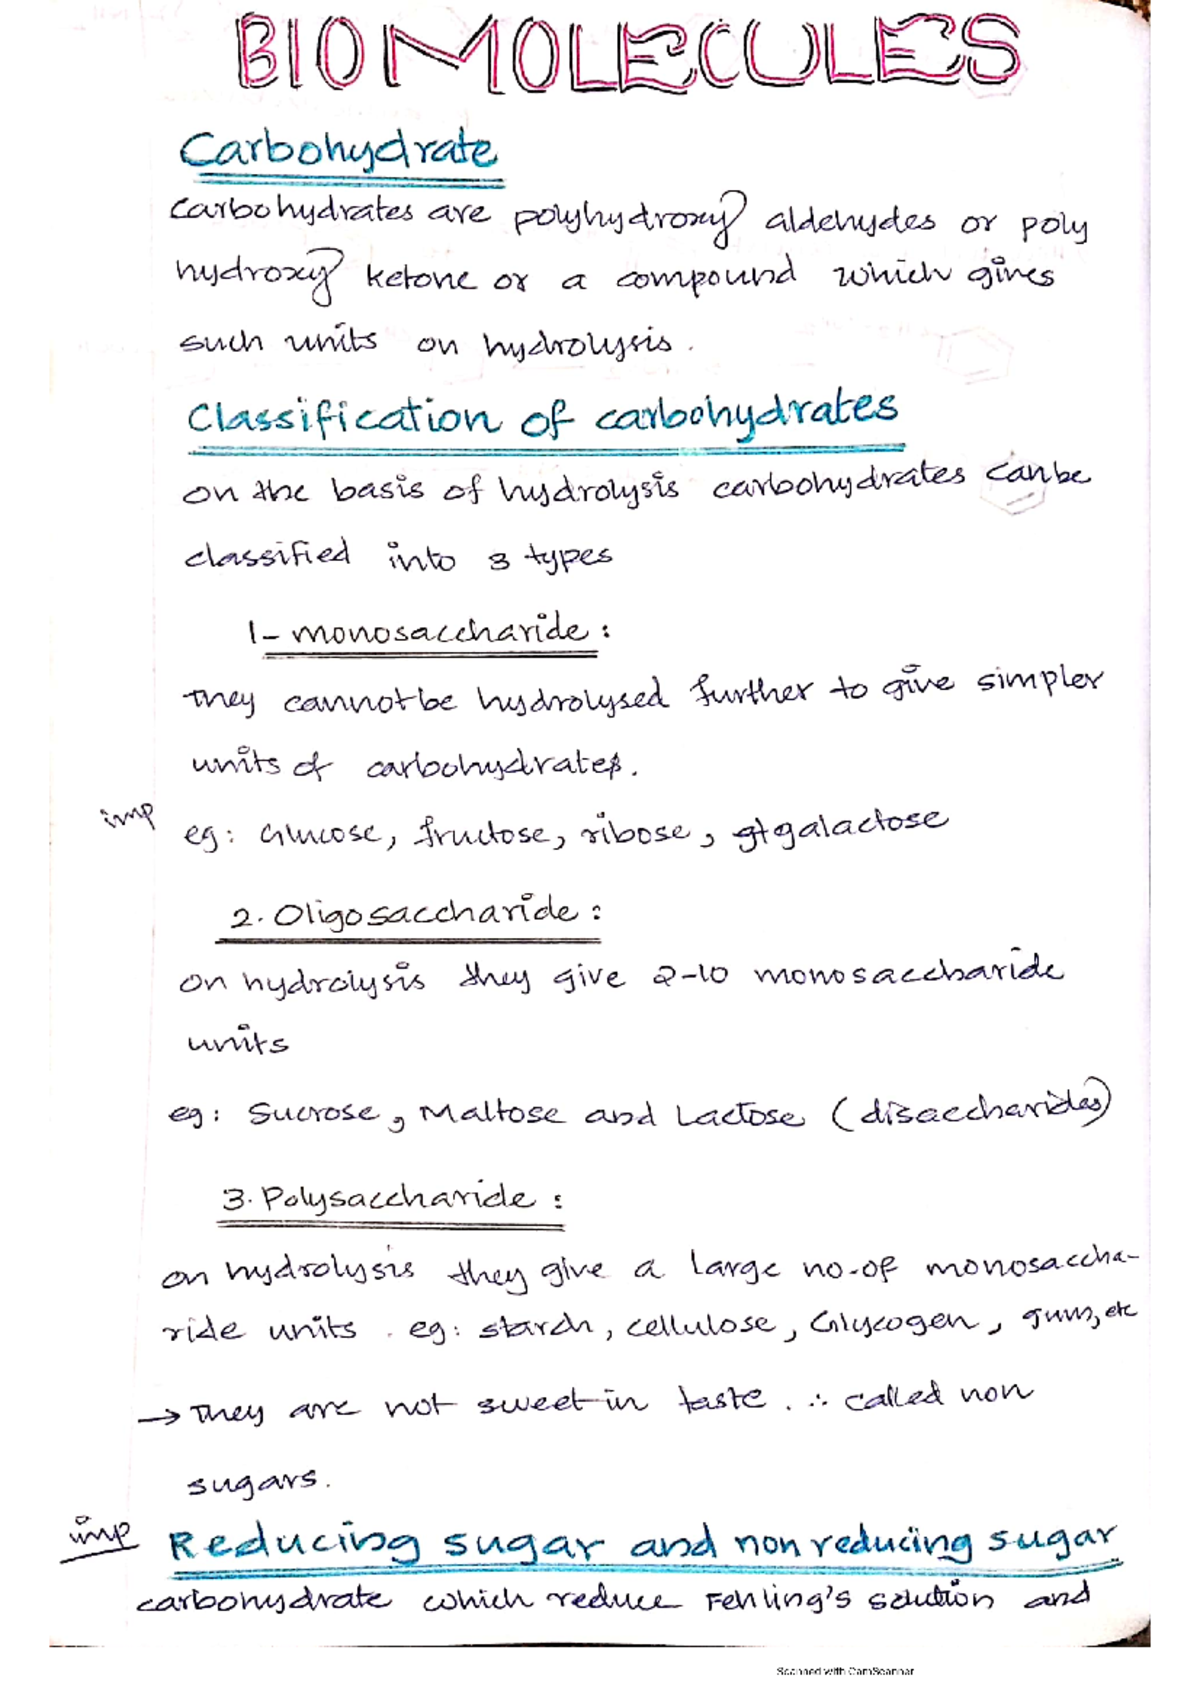 BIOMOLECULES
Carbohydrate
Carbohydrates are polyhydroxy aldehydes or poly
hydroxy ketone or a compound which gives
such units on hydrolysis.
Classification of carbohydrates
on the basis of hydrolysis carbohydrates can be
classified into 3 types
1- monosaccharide :
They cannot be hydrolysed further to give simpler
units of carbohydrates.
imp
eg: Glucose, fructose, ribose, galactose
2. Oligosaccharide :
on hydrolysis they give 2-10 monosaccharide
units
eg: Sucrose, Maltose and Lactose (disaccharides)
3. Polysaccharide :
on hydrolysis they give a large no. of monosaccha-
ride units. eg: starch, cellulose, Glycogen, gums, etc
→ They are not sweet in taste. ∴ called non
sugars.
imp Reducing sugar and non reducing sugar
carbohydrate which reduce Fehling's solution and
Scanned with CamScanner